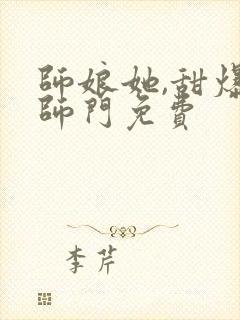 師娘她,甜爆
師門免費
李芹